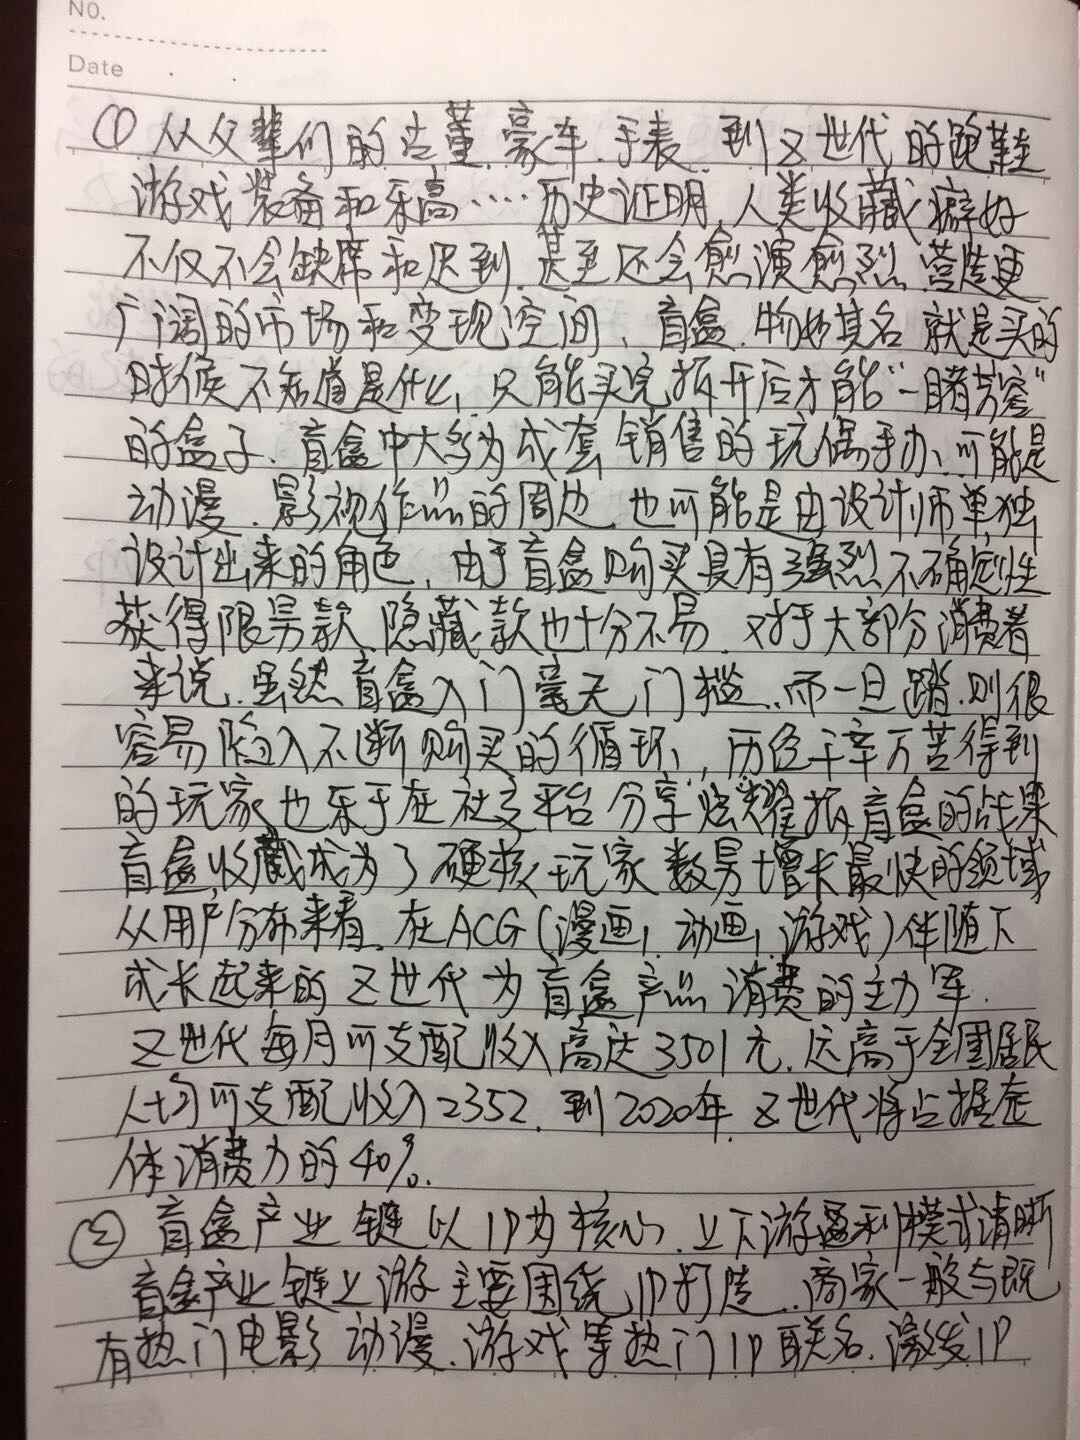 NO.
Date
① 从父辈们的古董、豪车、手表、到Z世代的跑鞋
游戏装备和乐高……历史证明,人类收藏癖好
不仅不会缺席和迟到,甚至还会愈演愈烈,营造更
广阔的市场和变现空间、盲盒、物如其名 就是买的
时候不知道是什么,只能买完拆开后才能“一睹芳容”
的盒子、盲盒中大多为成套销售的玩偶手办、可能是
动漫、影视作品的周边,也可能是由设计师单独
设计出来的角色,由于盲盒购买具有强烈不确定性
获得限量款、隐藏款也十分不易、对于大部分消费者
来说、虽然盲盒入门毫无门槛、而一旦踏,则很
容易陷入不断购买的循环、,历经千辛万苦得到
的玩家也乐于在社交平台分享“炫耀”拆盲盒的战果
盲盒收藏成为了硬核玩家数量增长最快的领域
从用户分布来看、在ACG(漫画,动画,游戏)伴随下
成长起来的Z世代为盲盒产品消费的主力军、
Z世代每月可支配收入高达3501元、远高于全国居民
人均可支配收入2352、到2020年、Z世代将占据整
体消费力的40%、
② 盲盒产业链以IP为核心、上下游盈利模式清晰
盲盒产业链上游主要围绕IP打造、商家一般与既
有热门电影、动漫、游戏等热门IP联名、激发IP